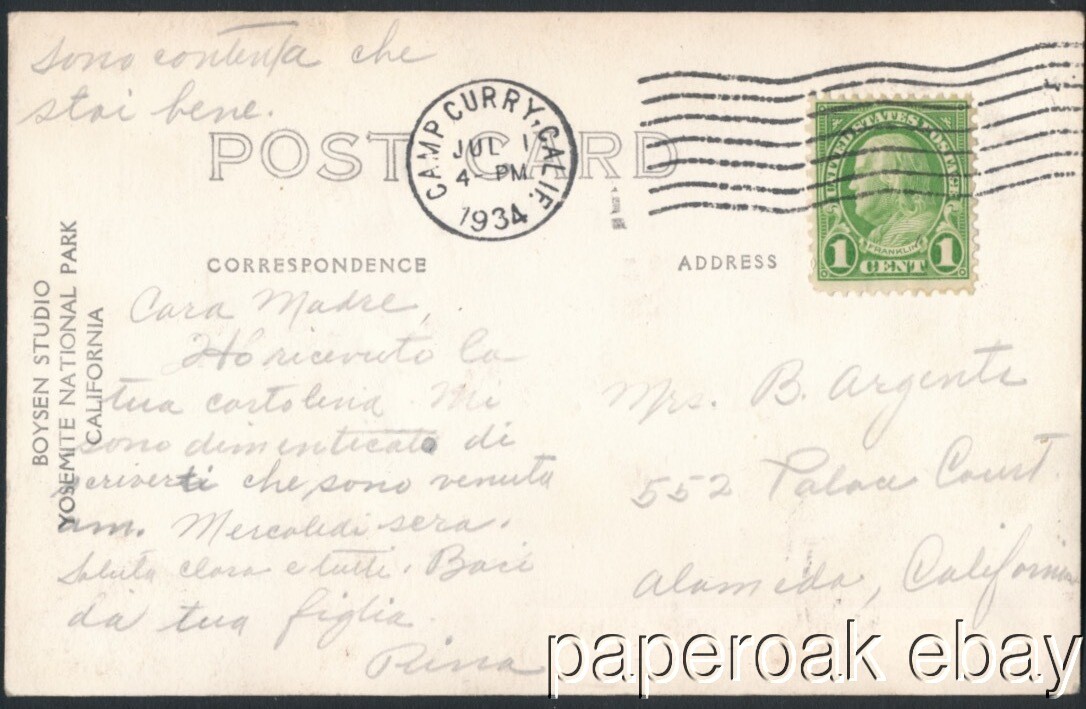 sono contenta che
stai bene.
POST CARD
CAMP CURRY, CALIF.
JUL 1
4 - PM
1934
UNITED STATES POSTAGE
FRANKLIN
1 CENT 1
CORRESPONDENCE
ADDRESS
BOYSEN STUDIO
YOSEMITE NATIONAL PARK
CALIFORNIA
Cara Madre,
Hó ricevuto la
tua cartolina Mi
sono dimenticato di
scriverti che sono venuta
Mercoledi sera.
Saluta Clara e tutti. Baci
da tua figlia
Rina
Mrs. B. Argenti
552 Palace Court
Alamida, California
paperoak ebay